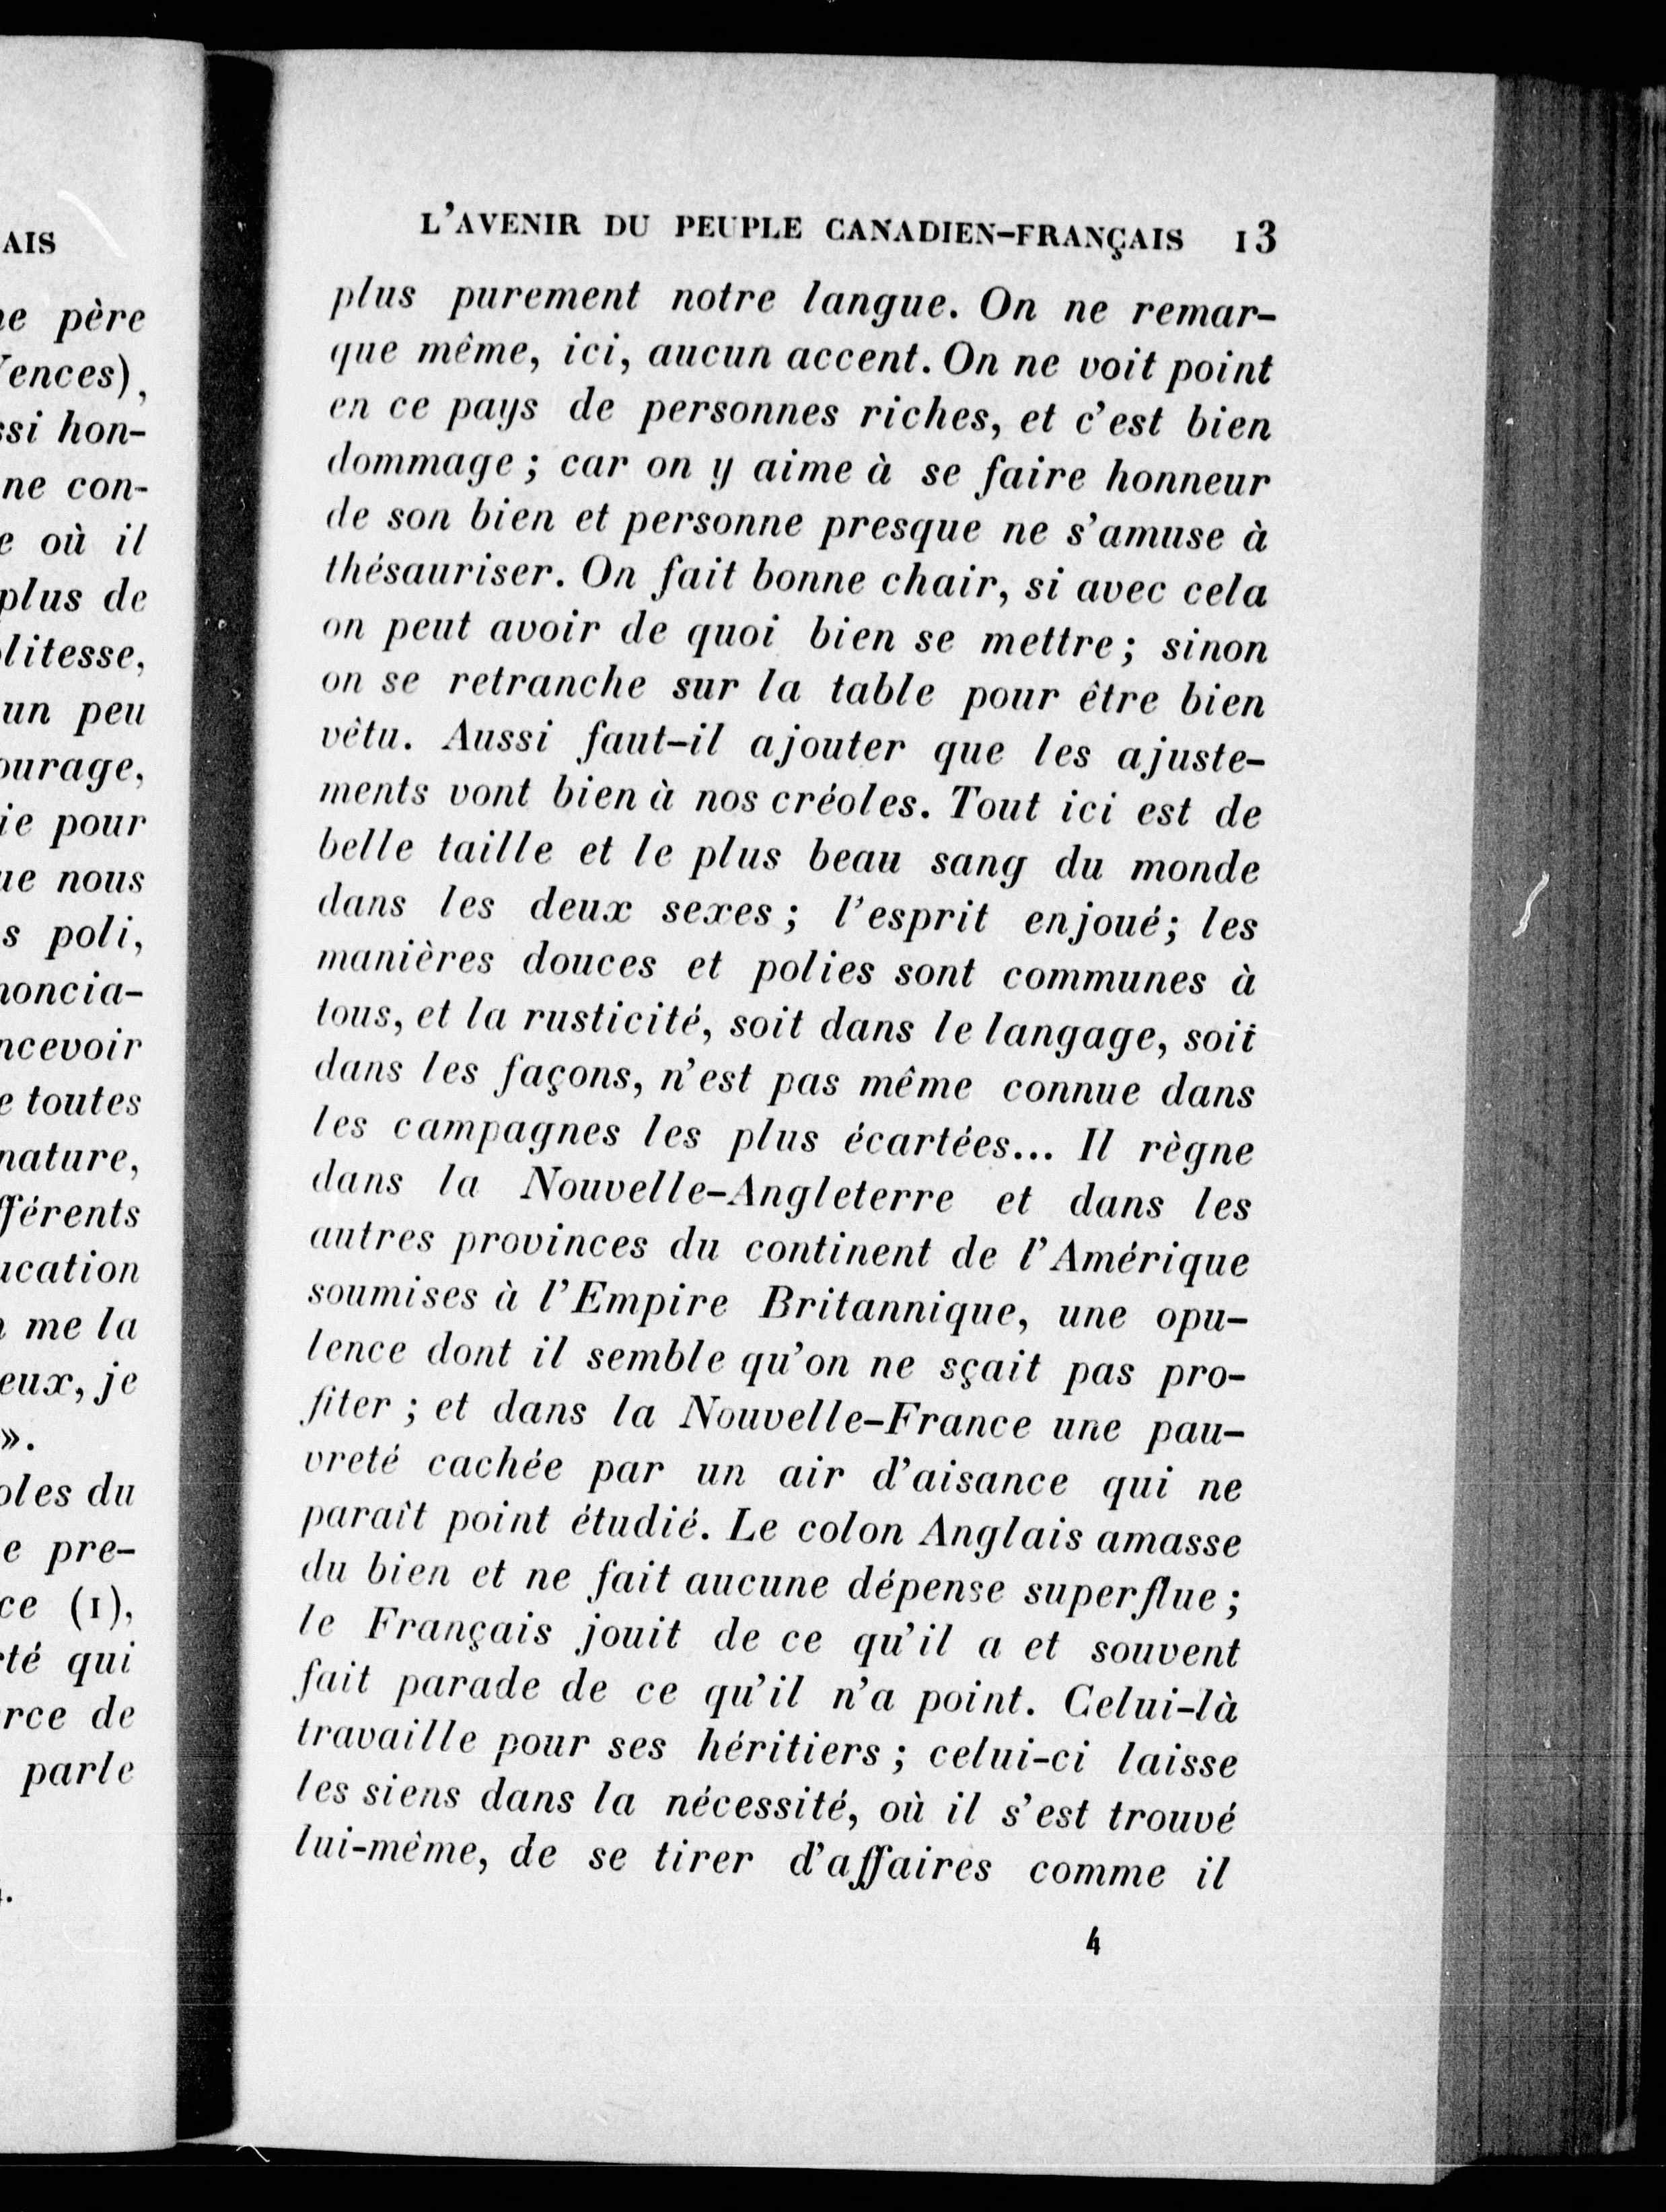 AIS
père
ences),
si hon-
ne con-
où il
plus de
litesse,
un peu
ourage,
ie pour
ue nous
s poli,
noncia-
ncevoir
e toutes
nature,
férents
ucation
me la
eux, je
».
oles du
e pre-
ce (1),
té qui
rce de
parle
L'AVENIR DU PEUPLE CANADIEN-FRANÇAIS 13
plus purement notre langue. On ne remar-
que même, ici, aucun accent. On ne voit point
en ce pays de personnes riches, et c'est bien
dommage ; car on y aime à se faire honneur
de son bien et personne presque ne s'amuse à
thésauriser. On fait bonne chair, si avec cela
on peut avoir de quoi bien se mettre ; sinon
on se retranche sur la table pour être bien
vêtu. Aussi faut-il ajouter que les ajuste-
ments vont bien à nos créoles. Tout ici est de
belle taille et le plus beau sang du monde
dans les deux sexes ; l'esprit enjoué ; les
manières douces et polies sont communes à
tous, et la rusticité, soit dans le langage, soit
dans les façons, n'est pas même connue dans
les campagnes les plus écartées... Il règne
dans la Nouvelle-Angleterre et dans les
autres provinces du continent de l'Amérique
soumises à l'Empire Britannique, une opu-
lence dont il semble qu'on ne sçait pas pro-
fiter ; et dans la Nouvelle-France une pau-
vreté cachée par un air d'aisance qui ne
paraît point étudié. Le colon Anglais amasse
du bien et ne fait aucune dépense superflue ;
le Français jouit de ce qu'il a et souvent
fait parade de ce qu'il n'a point. Celui-là
travaille pour ses héritiers ; celui-ci laisse
les siens dans la nécessité, où il s'est trouvé
lui-même, de se tirer d'affaires comme il
4